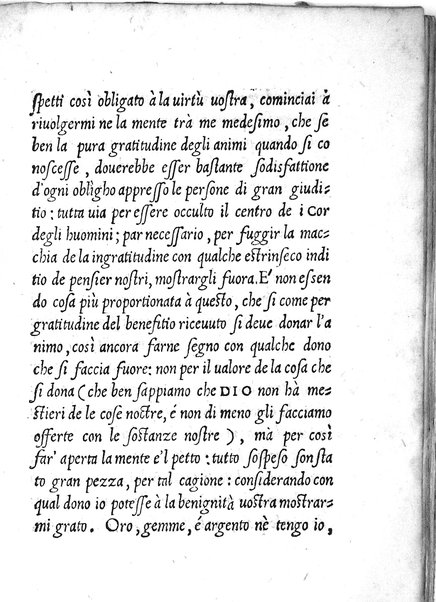 ſpetti così obligato à la uirtù uoſtra, cominciai à
riuolgermi ne la mente trà me medeſimo, che ſe
ben la pura gratitudine degli animi quando ſi co
noſceſſe, douerebbe eſſer baſtante ſodisfattione
d'ogni oblìgho appreſſo le perſone di gran giudi-
tio: tutta uia per eſſere occulto il centro de i Cor
degli huomini; par neceſſario, per fuggir la mac-
chia de la ingratitudine con qualche eſtrinſeco indi
tio de penſier noſtri, moſtrargli fuora. E' non eſſen
do coſa più proportionata à queſto, che ſi come per
gratitudine del benefitio riceuuto ſi deue donar l'a
nimo, così ancora farne ſegno con qualche dono
che ſi faccia fuore: non per il ualore de la coſa che
ſi dona (che ben ſappiamo che DIO non hà me-
ſtieri de le coſe noctre, é non di meno gli facciamo
offerte con le ſoſtanze noſtre), mà per così
far' aperta la mente e'l petto: tutto ſoſpeſo ſonſta
to gran pezza, per tal cagione: conſiderando con
qual dono io poteſſe à la benignità uoſtra moſtrar-
mi grato. Oro, gemme, é argento nè tengo io,